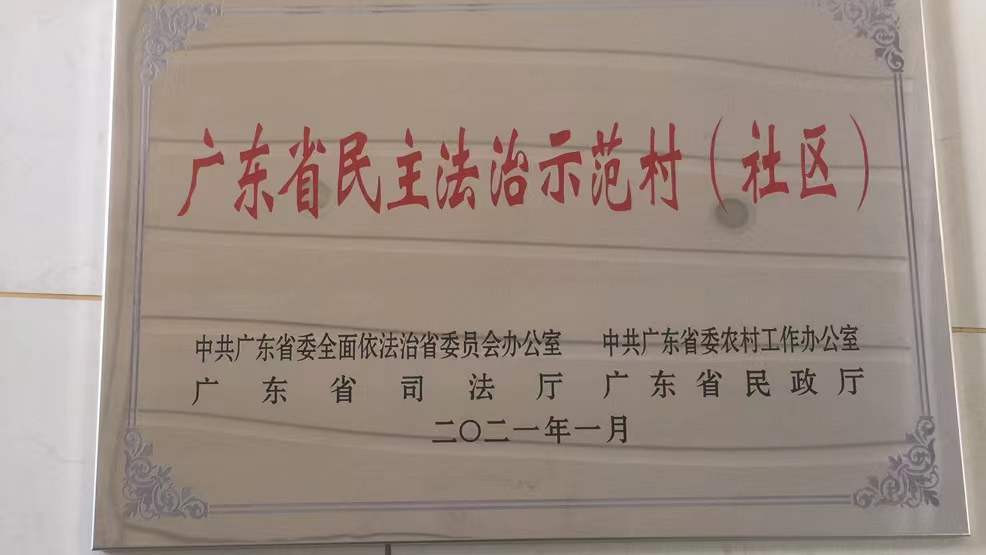 广东省民主法治示范村（社区）
中共广东省委全面依法治省委员会办公室 中共广东省委农村工作办公室
广东省司法厅 广东省民政厅
二〇二一年一月